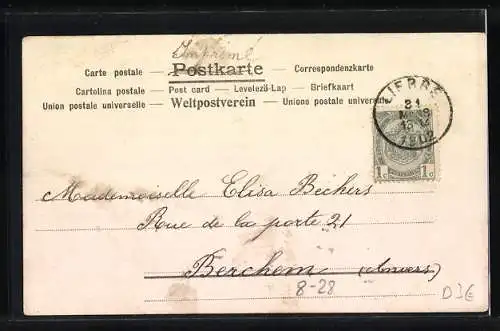 Imprimé
Carte postale — Postkarte — Correspondenzkarte
Cartolina postale — Post card — Levelező-Lap — Briefkaart
Union postale universelle — Weltpostverein — Unione postale universale
LIERRE
31
1902
1c 1c
Mademoiselle Elisa Beckers
Rue de la porte 21
Berchem (Anvers)
8-28
D3€